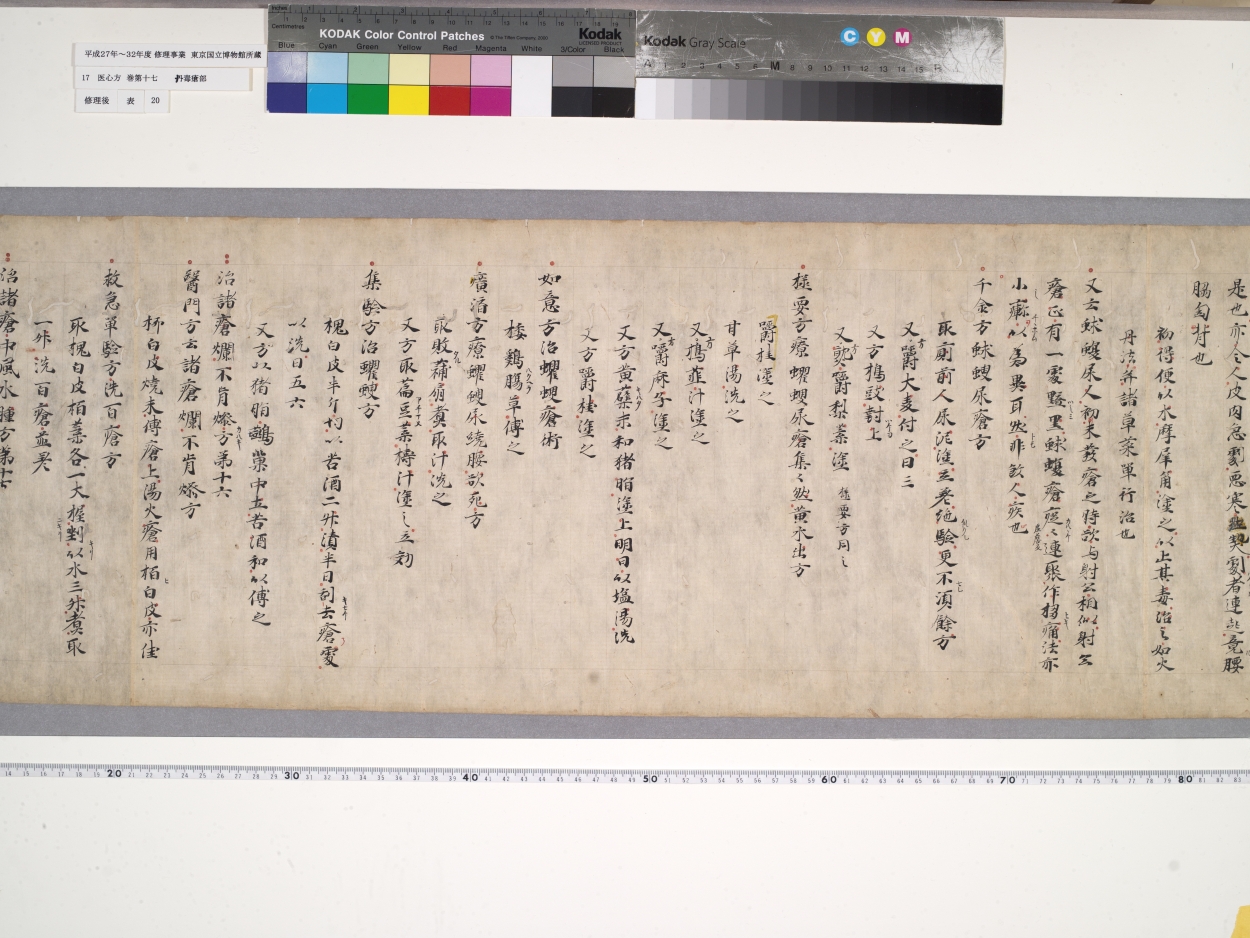 平成27年～32年度 修理事業 東京国立博物館所蔵
17 医心方 巻第十七 丹毒瘡部
修理後 表 20
KODAK Color Control Patches
Kodak
LICENSED PRODUCT
Blue Cyan Green Yellow Red Magenta White 3/Color Black
Kodak Gray Scale
C Y M
是也亦令人皮肉急劇悪寒 劇者連起竟腰
脇匈背也
初得便以水摩犀角塗之以上其毒治之如火
丹法并諸草菜單行治也
又云蛷螋尿人初未発瘡之時欲与射公相似射公
瘡正有一處黯黒蛷螋瘡 連聚作 痛法亦
小 以為異耳然非敚人疾也
千金方蛷螋尿瘡方
取廁前人尿泥塗立差絶驗更不須餘方
又方嚼大麦付之日三
又方搗豉封上
又方嚼梨葉塗 極要方同之
極要方療蠷螋尿瘡集々然黄水出方
嚼桂塗之
甘草湯洗之
又方搗韮汁塗之
又方嚼麻子塗之
又方黄蘗末和猪脂塗上明日以塩湯洗
又方嚼桂塗之
如意方治蠷螋瘡術
挼鷄腸草傅之
廣濟方療蠷螋尿繞腰欲死方
取敗蒲扇煮取汁洗之
又方取藊豆葉擣汁塗之立効
集驗方治蠷螋方
槐白皮半斤切以苦酒二升漬半日刮去瘡處
以洗日五六
又方以猪脂鷰菓中土苦酒和以傅之
治諸瘡爛不肯燥方第十六
醫門方云諸瘡爛不肯燥方
柳白皮燒末傅瘡上湯火瘡用栢白皮亦佳
救急單驗方洗百瘡方
取槐白皮栢葉各一大握剉以水三升煮取
一升洗百瘡並差
治諸瘡中風水腫方第十七
20 30 40 50 60 70 80